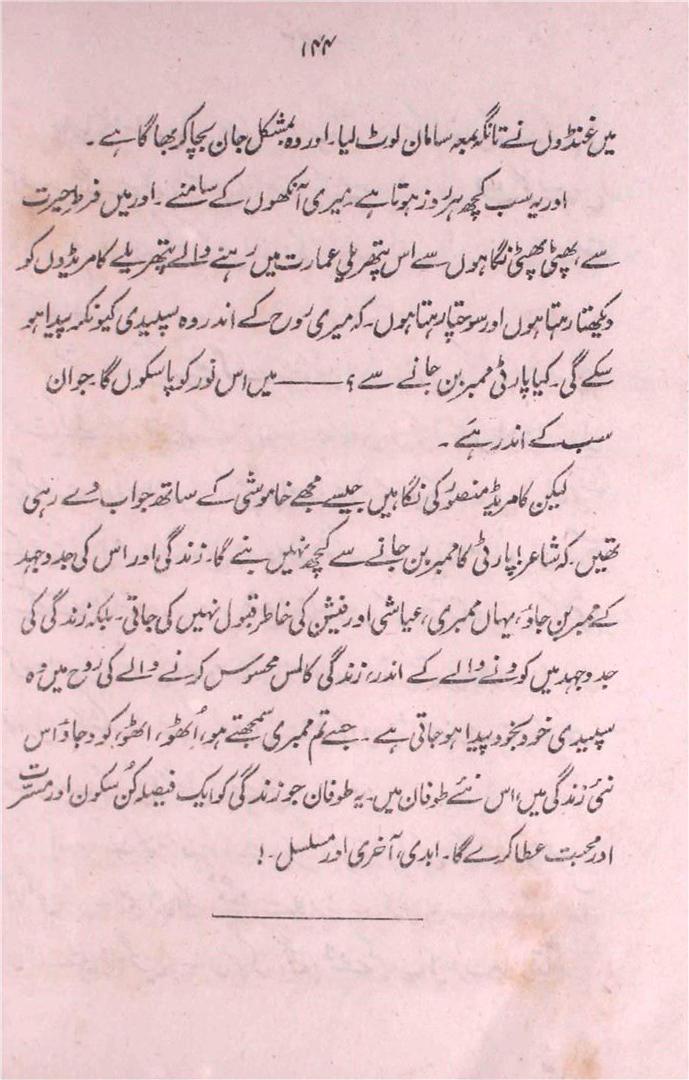 ۱۴۴
میں غنڈوں نے تانگہ بمعہ سامان لوٹ لیا۔ اور وہ بمشکل جان بچا کر بھاگا ہے۔
اور یہ سب کچھ ہر روز ہوتا ہے۔ میری آنکھوں کے سامنے۔ اور میں فرطِ حیرت
سے، پھٹی پھٹی نگاہوں سے اس پتھریلی عمارت میں رہنے والے پتھریلے کامریڈوں کو
دیکھتا رہتا ہوں اور سوچتا رہتا ہوں۔ کہ میری روح کے اندر وہ سپیدی کیونکر پیدا ہو
سکے گی۔ کیا پارٹی ممبر بن جانے سے؟ —— میں اس نور کو پا سکوں گا۔ جو ان
سب کے اندر ہے۔
لیکن کامریڈ منصور کی نگاہیں جیسے مجھے خاموشی کے ساتھ جواب دے رہی
تھیں۔ کہ شاعر! پارٹی کا ممبر بن جانے سے کچھ نہیں بنے گا۔ زندگی اور اس کی جدوجہد
کے ممبر بن جاؤ، یہاں ممبری، عیاشی اور فیشن کی خاطر قبول نہیں کی جاتی۔ بلکہ زندگی کی
جدوجہد میں کودنے والے کے اندر، زندگی کا لمس محسوس کرنے والے کی روح میں وہ
سپیدی خود بخود پیدا ہو جاتی ہے۔ جسے تم ممبری سمجھتے ہو، اُٹھو، اٹھو، کود جاؤ اس
نئی زندگی میں، اس نئے طوفان میں۔ یہ طوفان جو زندگی کو ایک فیصلہ کُن سکون اور مسرت
اور محبت عطا کرے گا۔ ابدی، آخری اور مسلسل۔!